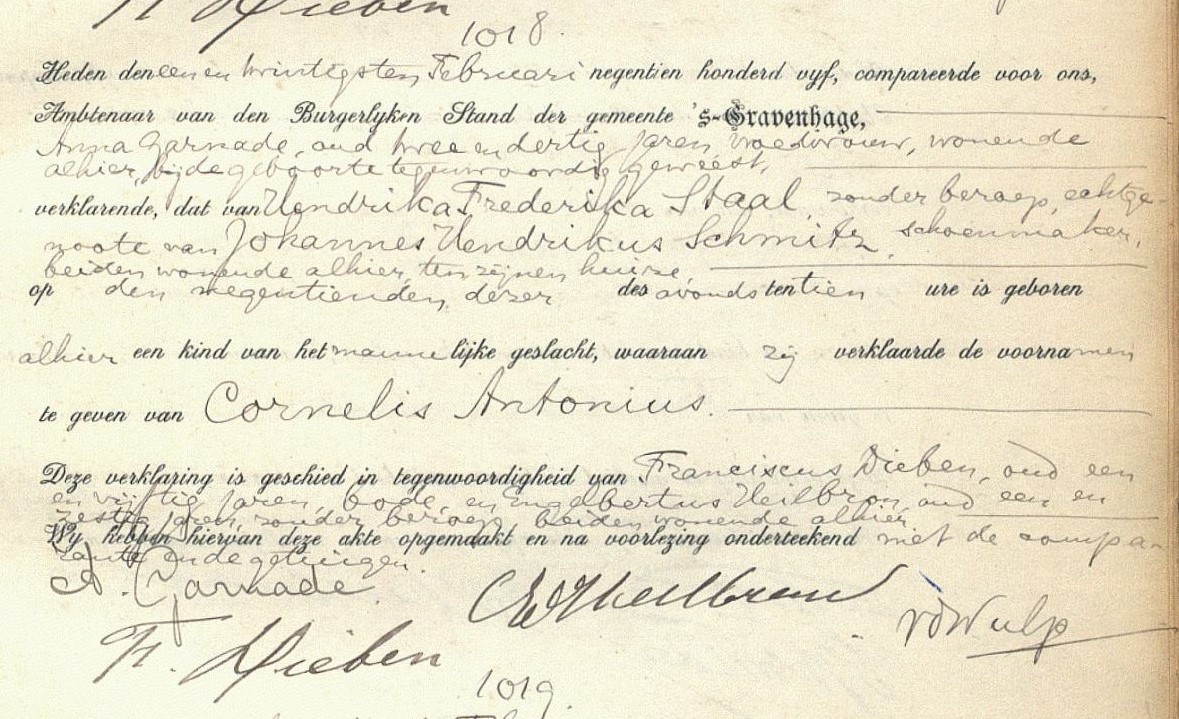 Fr. Dieben
1018.
Heden den een en twintigsten Februari negentien honderd vyf, compareerde voor ons,
Ambtenaar van den Burgerlyken Stand der gemeente 's-Gravenhage,
Anna Garnade, oud twee en dertig jaren, vroedvrouw, wonende
alhier, bij de geboorte tegenwoordig geweest,
verklarende, dat van Hendrika Frederika Staal, zonder beroep, echtge-
noote van Johannes Hendrikus Schmitz, schoenmaker,
beiden wonende alhier, ten zijnen huize,
op den negentienden dezer des avonds ten tien ure is geboren
alhier een kind van het mannelijke geslacht, waaraan zij verklaarde de voornamen
te geven van Cornelis Antonius.
Deze verklaring is geschied in tegenwoordigheid van Franciscus Dieben, oud een
en vijftig jaren, bode, en Engelbertus Heilbron, oud een en
zestig jaren, zonder beroep, beiden wonende alhier.
Wy hebben hiervan deze akte opgemaakt en na voorlezing onderteekend met de compa-
rante en de getuigen.
A. Garnade.
vdWulp
Fr. Dieben
1019.